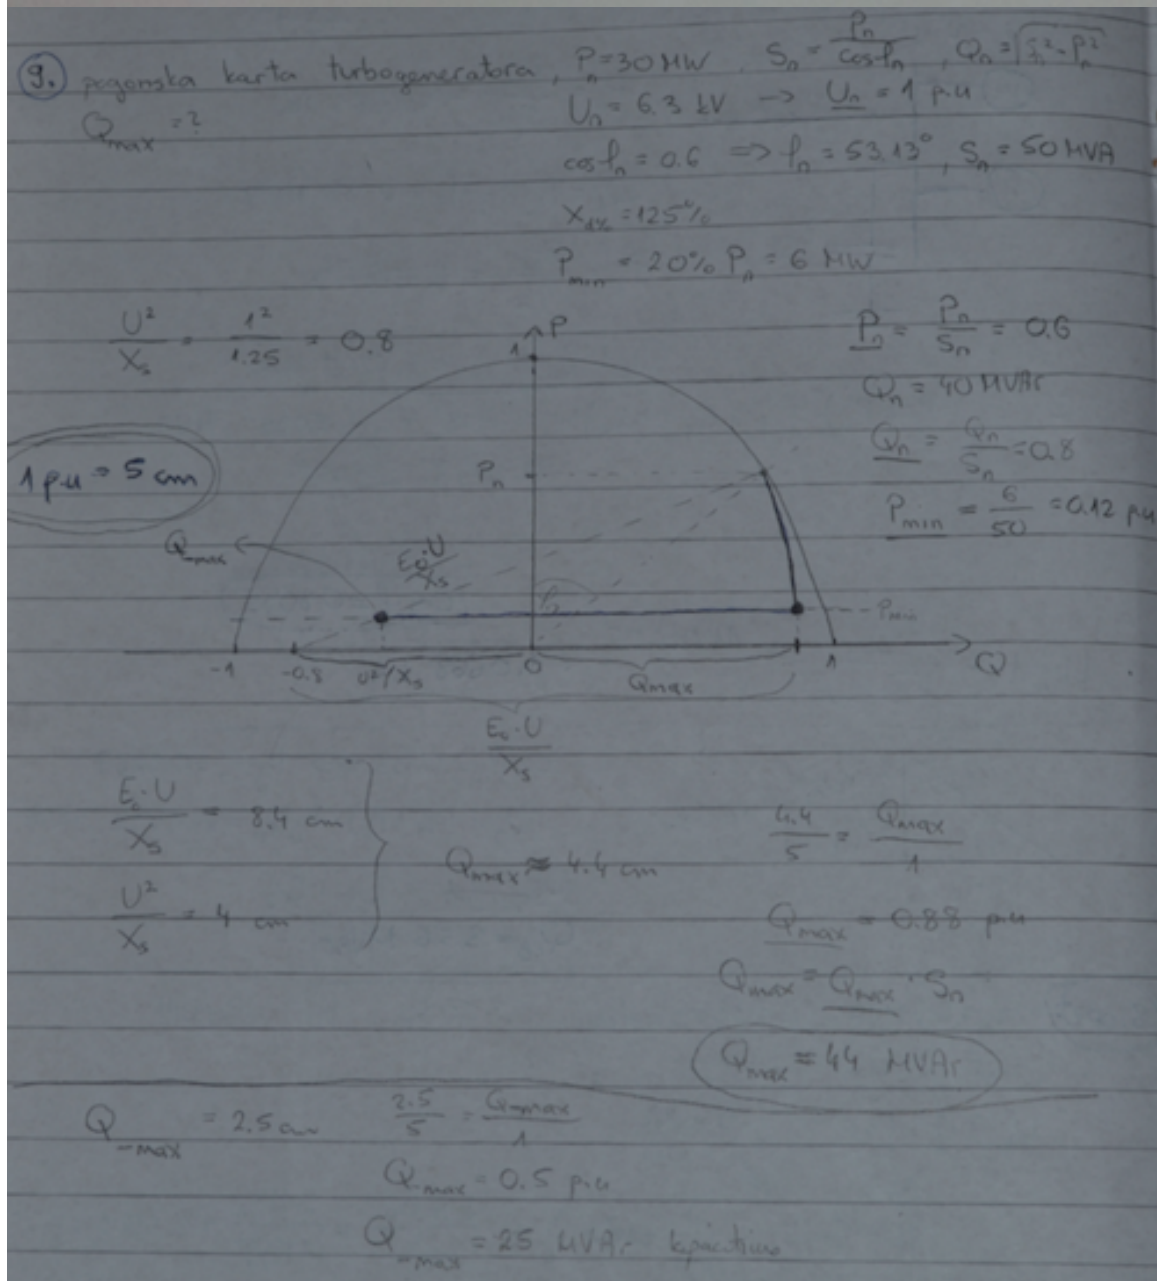 9. pogonska karta turbogeneratora, Pn = 30 MW Sn = Pn/cosφn, Qn = √(Sn² - Pn²)
Qmax = ? Un = 6.3 kV → Un = 1 p.u
cosφn = 0.6 => φn = 53.13°, Sn = 50 MVA
Xd% = 125%
Pmin = 20% Pn = 6 MW
U²/Xs = 1²/1.25 = 0.8
P
1
Pn = Pn/Sn = 0.6
Qn = 40 MVAr
Qn = Qn/Sn = 0.8
1 p.u = 5 cm
Pn
Pmin = 6/50 = 0.12 p.u
Q-max
E0·U/Xs
Pmin
-1 -0.8 U²/Xs 0 Qmax 1 Q
E0·U/Xs
E0·U/Xs = 8.4 cm
U²/Xs = 4 cm
Qmax ≈ 4.4 cm
4.4/5 = Qmax/1
Qmax = 0.88 p.u
Qmax = Qmax · Sn
Qmax ≈ 44 MVAr
Q-max = 2.5 cm 2.5/5 = Q-max/1
Q-max = 0.5 p.u
Q-max = 25 MVAr